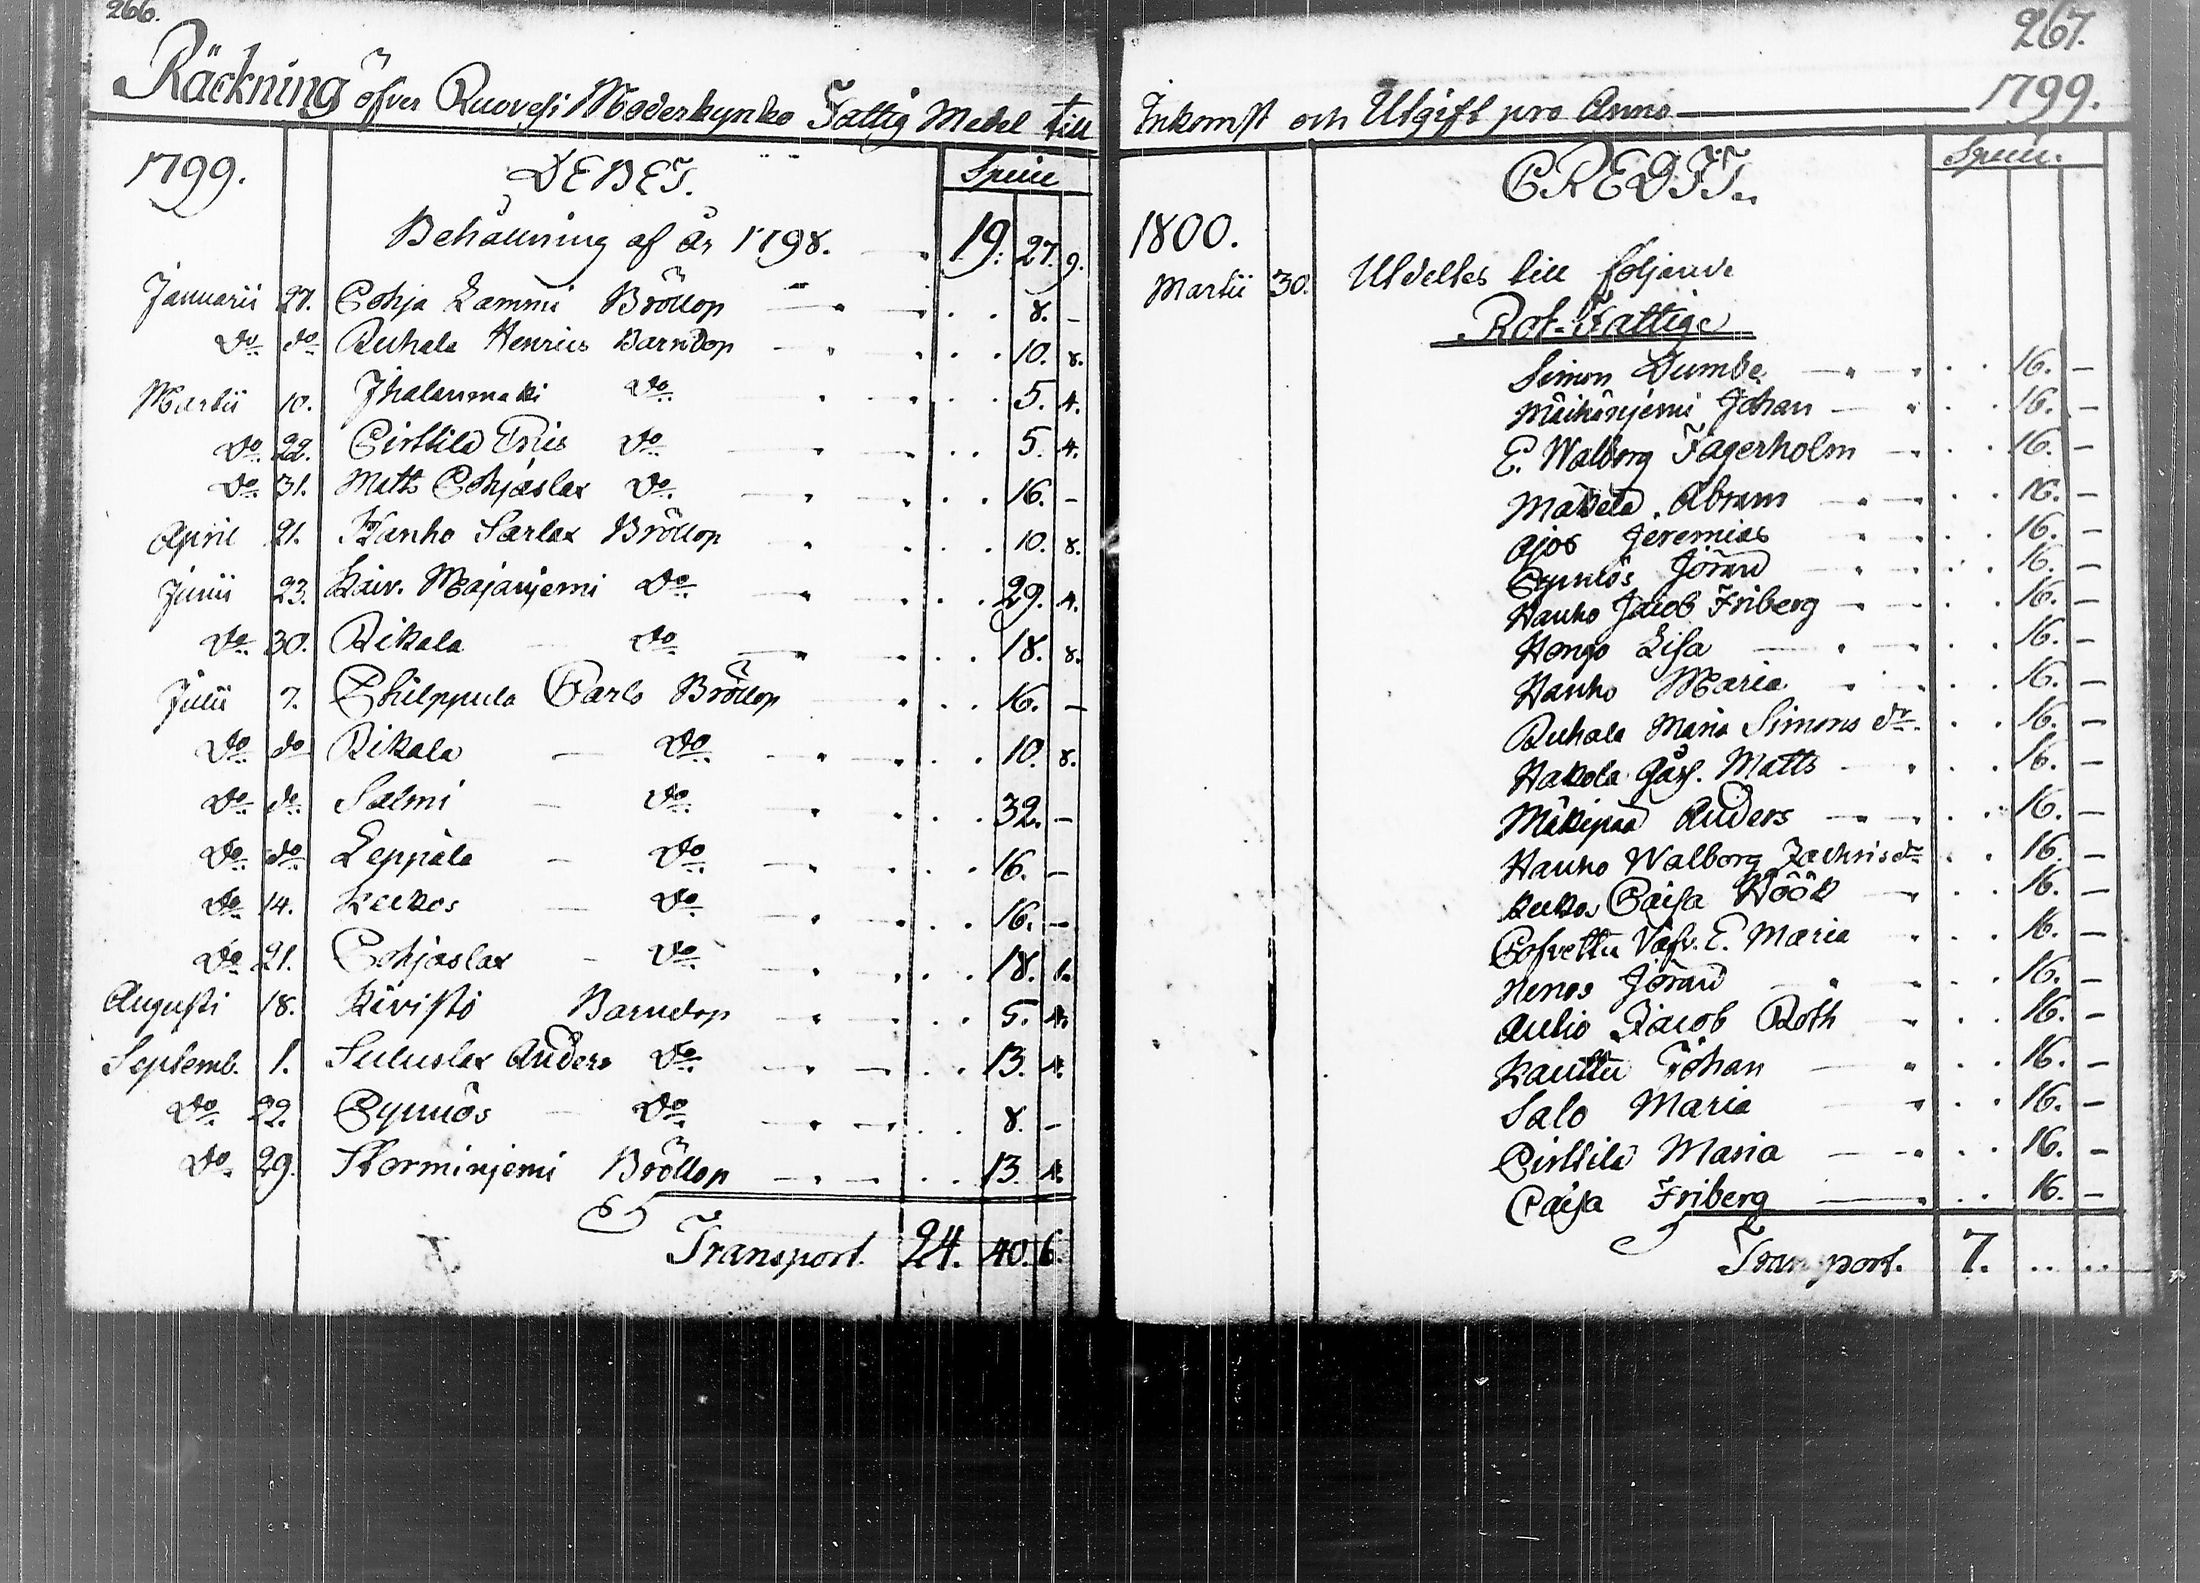 266.
Räckning öfver Ruovesi Moderkyrko Fattig Medel till
1799. DEBET. Specie
Behållning af år 1798. 19. 27. 9.
Januarii 27. Pohja Lammi Bröllop 8. -
Do do Ruhala Henrics Barndop 10. 8.
Martii 10. Ihalanmaki Do 5. 4.
Do 22. Pirttilä Eriks Do 5. 4.
Do 31. Matts Pohjaslax Do 16. -
April 21. Hanho Sarlax Bröllop 10. 8.
Junii 23. Majanjemi Do 29. 4.
Do 30. Rikala Do 18. 8.
Julii 7. Philppula Carls Bröllop 16. -
Do do Rikala Do 10. 8.
Do do Salmi Do 32. -
Do do Leppälä Do 16. -
Do 14. Keckos Do 16. -
Do 21. Pohjaslax Do 18. 1.
Augusti 18. Kivistö Barndop 5. 4.
Septemb. 1. Suluslax Anders Do 13. 4.
Do 22. Pynnös Do 8. -
Do 29. Storminjemi Bröllop 13. 4.
Transport. 24. 40. 6.
267.
Inkomst och Utgift pro Anno 1799.
CREDIT. Specie.
1800.
Martii 30. Utdeltes till följande
Rot-Fattige
Simon Dumbe 16. -
Johan 16. -
E. Walborg Fagerholm 16. -
Mäkelä Abram 16. -
Ajos Jeremias 16. -
Pynnös Jöran 16. -
Hanho Jacob Friberg 16. -
Hongo Lisa 16. -
Hanho Maria 16. -
Ruhala Maria Simons dr 16. -
Hakola Matts 16. -
Mäkipää Anders 16. -
Hanho Walborg Zachris dr 16. -
Keckos Caisa Höök 16. -
E. Maria 16. -
Jöran 16. -
Aulio Jacob Roth 16. -
Kauttu Johan 16. -
Salo Maria 16. -
Pirttilä Maria 16. -
Caisa Friberg 16. -
Transport. 7. .. ..